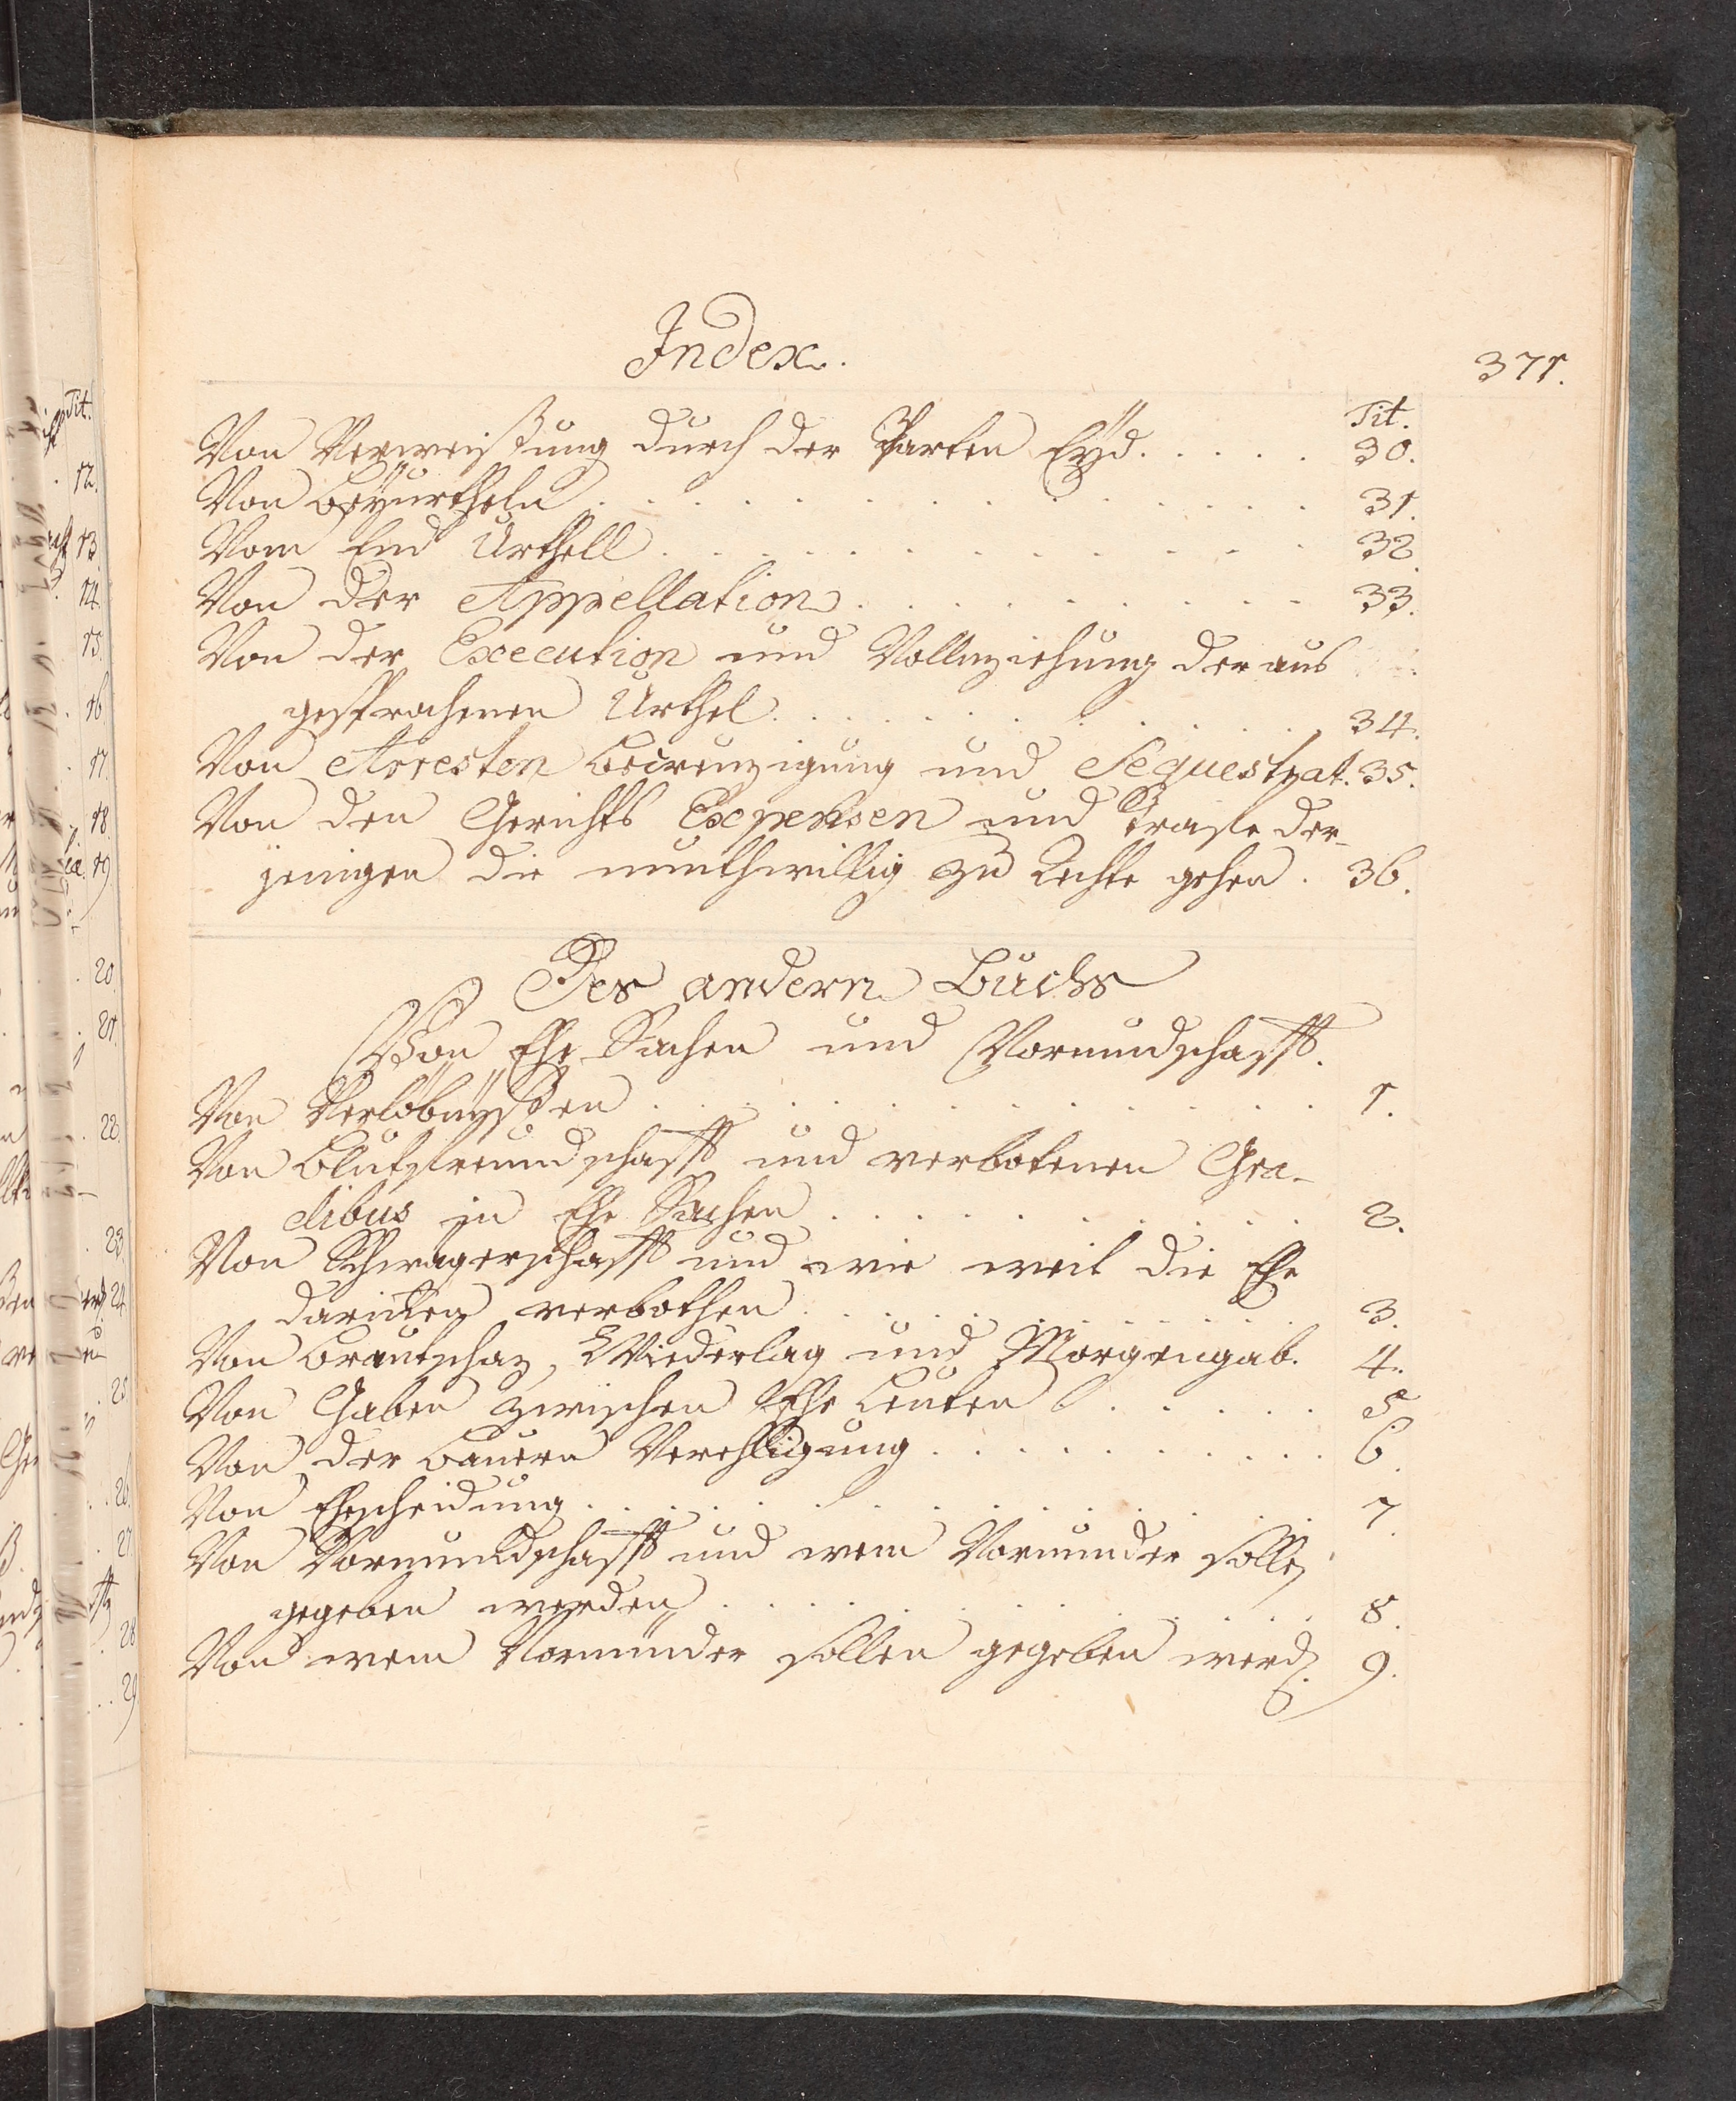 Index.
371.
Tit.
Von Verweißung durch der Parten Eyd. . . . . 30.
Von Beyurtheln . . . . . . . . . . . . 31.
Vom End Urthell . . . . . . . . . . . 32.
Von der Appellation . . . . . . . . . 33.
Von der Execution und Vollnziehung der aus
gesprochenen Urthel . . . . . . . . . . 34.
Von Arresten und Sequestrat. 35.
Von den Gerichts Expensen und Straffe der-
jenigen die muthwillig zu Rechte gehen . 36.
Des andern Buchs
Von Ehe Sachen und Vormundschafft.
Von Verlöbnyßen . . . . . . . . . . . . 1.
Von Blutsfreundschafft und verbotenen Gra-
dibus in Ehe Sachen . . . . . . . . . . 2.
Von Schwägerschafft und wie weit die Ehe
darinnen verbothen . . . . . . . . . . 3.
Von Brautschaz, Wiederlag und Morgengab. 4.
Von Gaben zwischen Ehe Leuten . . . . . 5
Von der Bauern Verehligung . . . . . . . 6.
Von Ehescheidung . . . . . . . . . . . 7.
Von Vormundschafft und wem Vormunder solle
gegeben werden . . . . . . . . . . . . 8.
Von wem Vormunder sollen gegeben werd. 9.
Tit.
12.
13.
14.
15.
16.
17.
18.
19.
20.
21.
22.
23.
24.
25.
26.
27.
28.
29.